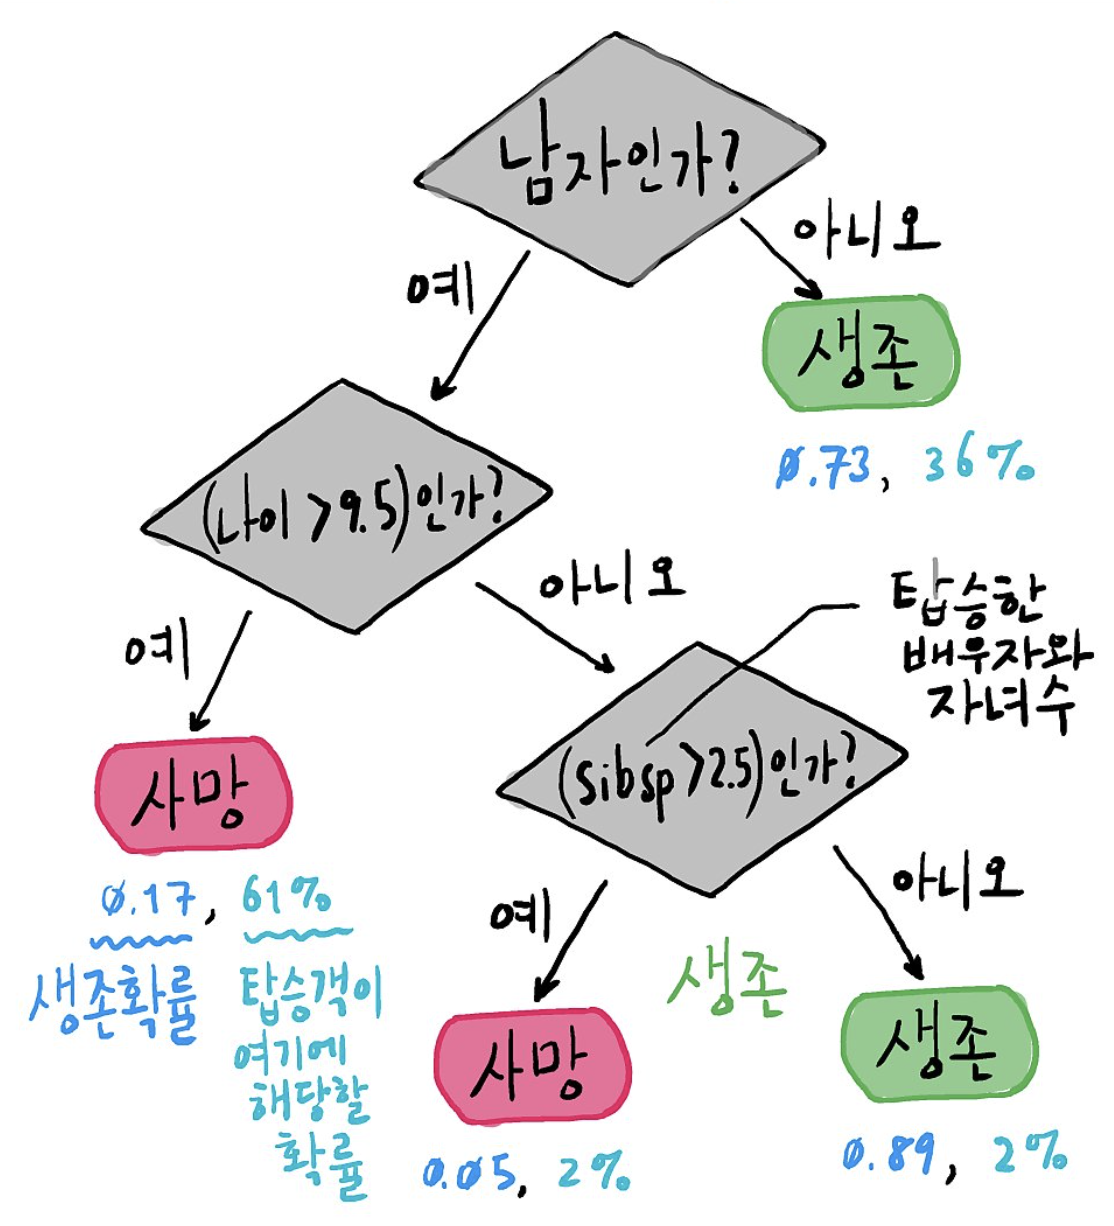 남자인가?
예
아니오
생존
0.73, 36%
(나이 >9.5)인가?
예
아니오
탑승한
배우자와
자녀수
사망
0.17, 61%
생존확률
탑승객이
여기에
해당할
확률
(sibsp >2.5)인가?
예
아니오
생존
사망
0.05, 2%
생존
0.89, 2%